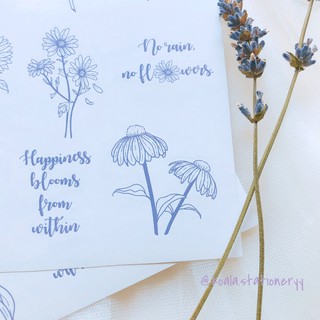 No rain,
no flowers.
Happiness
blooms
from
within
@koala.stationeryy